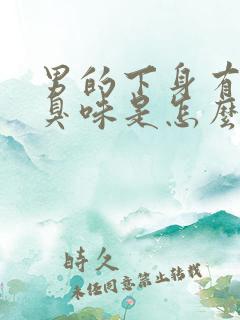 男的下身有
臭味是怎麽
時久
未任同意禁止转载